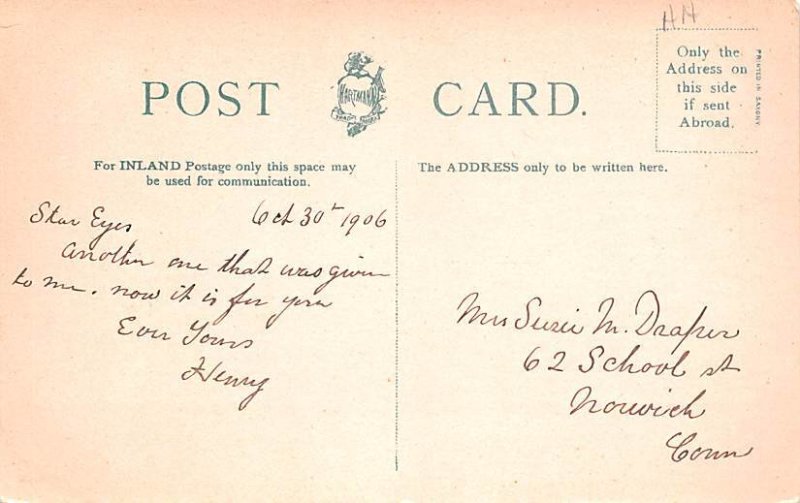 HH
POST CARD.
HARTMANN
Only the
Address on
this side
if sent
Abroad.
PRINTED IN SAXONY
For INLAND Postage only this space may
be used for communication.
The ADDRESS only to be written here.
Star Eyes Oct 30th 1906
Another one that was given
to me. now it is for you
Ever Yours
Henry
Mrs Susie M. Draper
62 School st
Norwich
Conn